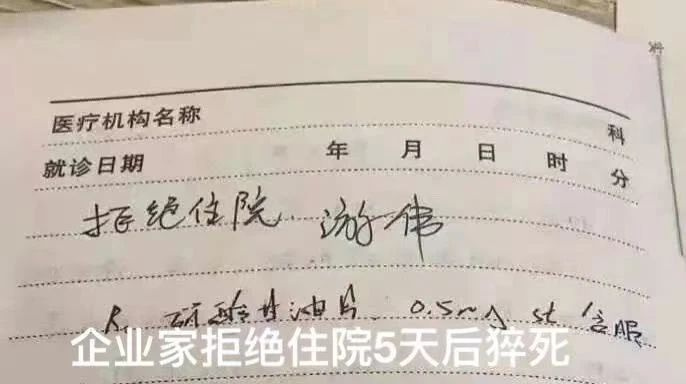 医疗机构名称 科
就诊日期 年 月 日 时 分
拒绝住院 游伟
R 硝酸甘油片 0.5mg st 含服
企业家拒绝住院5天后猝死